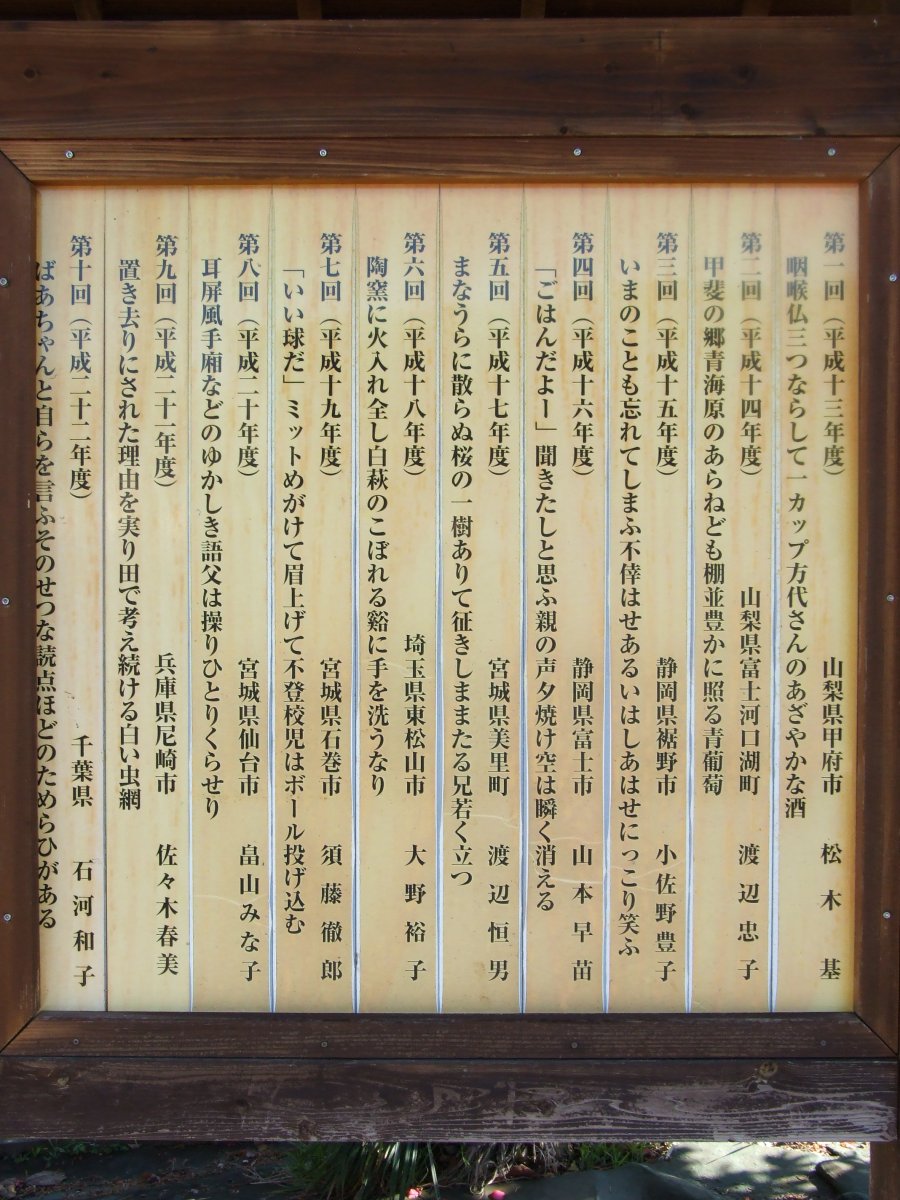 第一回（平成十三年度）　山梨県甲府市　松木　基
咽喉仏三つならして一カップ方代さんのあざやかな酒
第二回（平成十四年度）　山梨県富士河口湖町　渡辺忠子
甲斐の郷青海原のあらねども棚並豊かに照る青葡萄
第三回（平成十五年度）　静岡県裾野市　小佐野豊子
いまのことも忘れてしまふ不倖はせあるいはしあはせにっこり笑ふ
第四回（平成十六年度）　静岡県富士市　山本早苗
「ごはんだよー」聞きたしと思ふ親の声夕焼け空は瞬く消える
第五回（平成十七年度）　宮城県美里町　渡辺恒男
まなうらに散らぬ桜の一樹ありて征きしままたる兄若く立つ
第六回（平成十八年度）　埼玉県東松山市　大野裕子
陶窯に火入れ全し白萩のこぼれる谿に手を洗うなり
第七回（平成十九年度）　宮城県石巻市　須藤徹郎
「いい球だ」ミットめがけて眉上げて不登校児はボール投げ込む
第八回（平成二十年度）　宮城県仙台市　畠山みな子
耳屏風手廂などのゆかしき語父は操りひとりくらせり
第九回（平成二十一年度）　兵庫県尼崎市　佐々木春美
置き去りにされた理由を実り田で考え続ける白い虫網
第十回（平成二十二年度）　千葉県　石河和子
ばあちゃんと自らを言ふそのせつな読点ほどのためらひがある